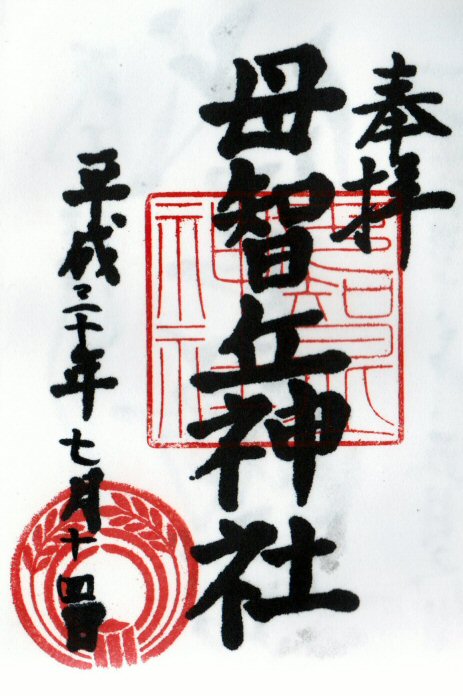 奉拝
母智丘神社
平成二十年七月十四日